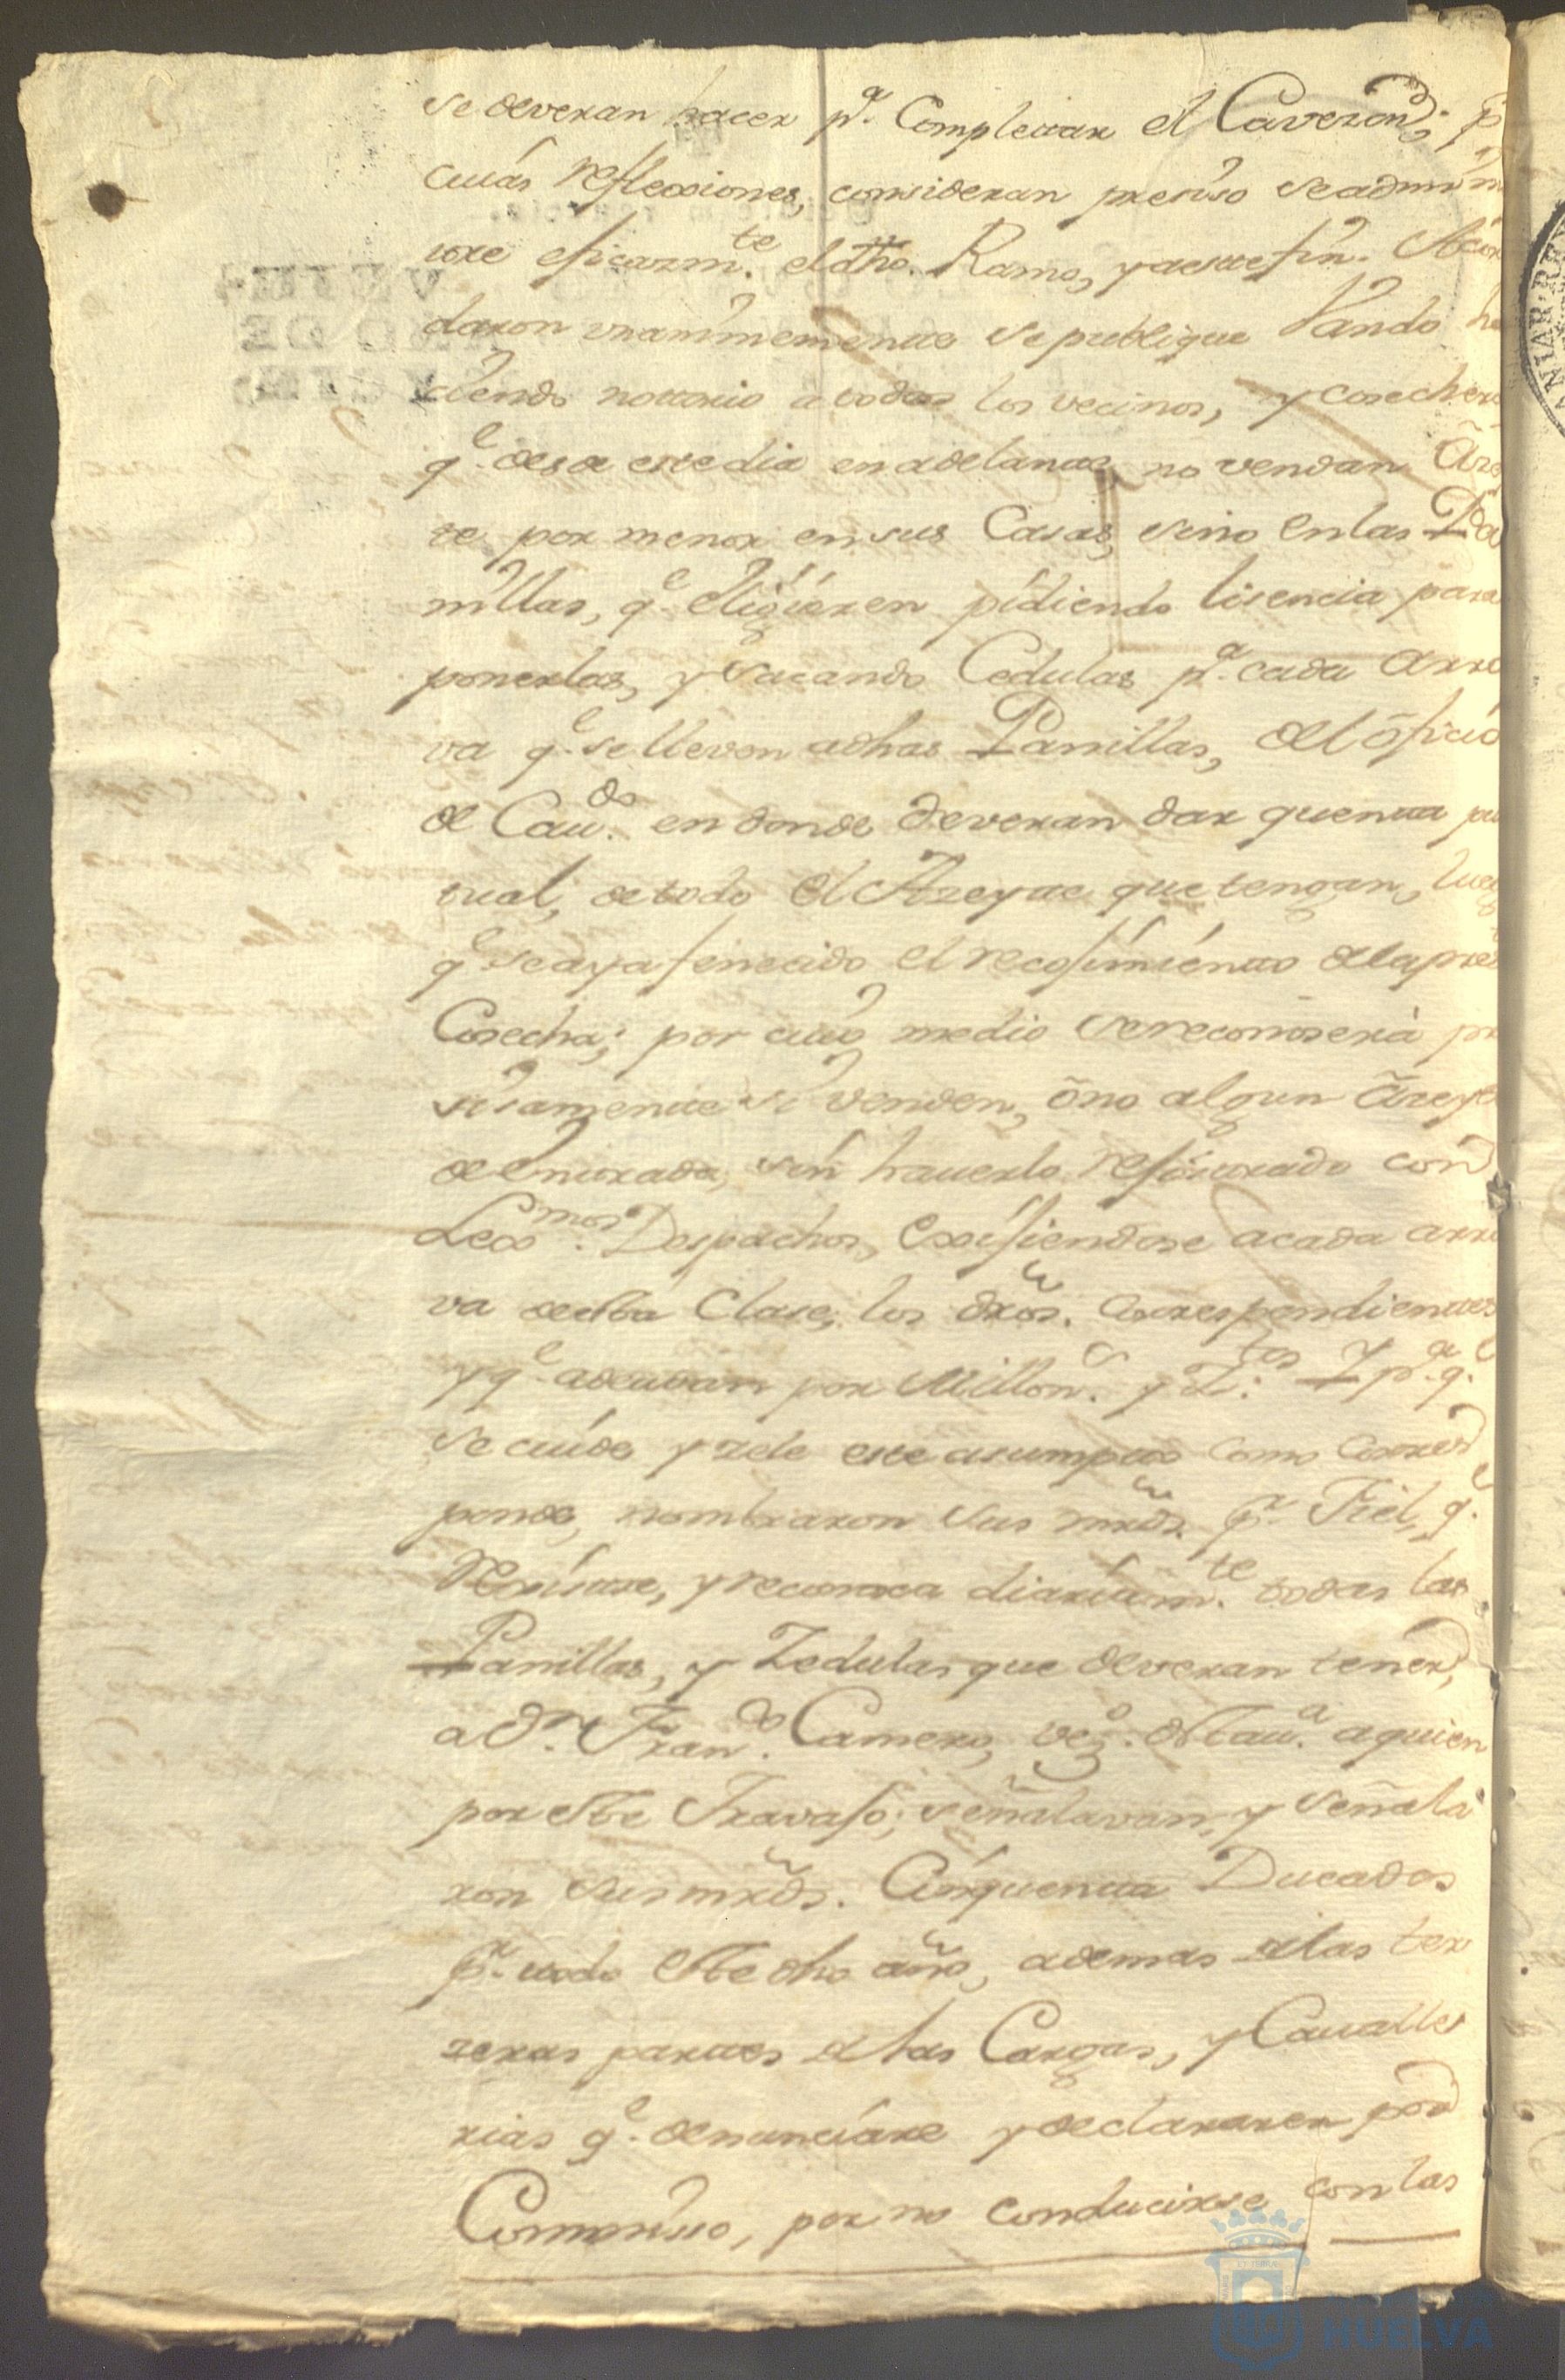 se deveran hacer pª. Completar el Cavezon; p
cuias reflecsiones, consideran presiso se admin
tre eficazmte. el dho. Ramo, y a este fin. Acor
daron unanimemente se publique Vando ha
ciendo notorio a todos los vecinos, y cosecher
qe. desde este dia en adelante, no vendan Azey
te por menor en sus Casas, sino en las Pa
nillas, qe. eligieren pidiendo lisencia para
ponerlas, y sacando Cedulas pª. cada arro
va qe. se lleven a dhas Panillas, del oficio
de Cavdo. en donde deveran dar quenta pu
tual, de todo el Azeyte que tengan, lueg
qe. se aya fenecido el recojimiento de la pres
Cosecha; por cuio medio se reconoserá pre
sisamente si venden, o no algun azeyte
de entrada, sin haverlo rejistrado con
Lexmos. Despachos, Exsijiendose a cada arro
va de esta Clase, los dros. correspondientes
y qe. adeudan por Millons. y Ztos. Y pª. qe.
se cuide y zele este asumpto como corres
ponde, nombraron sus mrds. pr. Fiel, qe.
Rexistre, y reconosca diariamte. todas las
Panillas, y Zedulas que deveran tener,
a Dn. Frando. Camero, vezº. de esta vª. a quien
por este Travajo; señalavan, y señala
ron sus mrds. Cinquenta Ducados
pr. todo este dho año, ademas de las ter
zeras partes de las Cargas, y Cavalle
rias qe. denunciare y declararen por
Commisso, por no conducirse con las
HUELVA